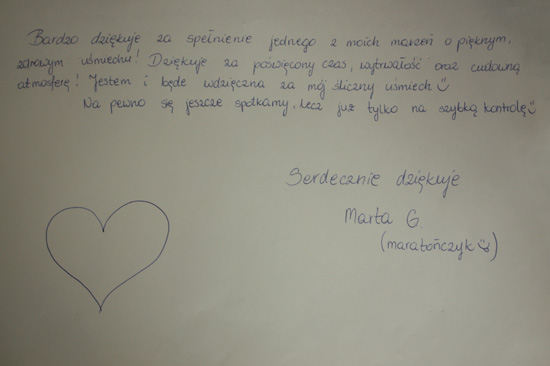 Bardzo dziękuje za spełnienie jednego z moich marzeń o pięknym,
zdrowym uśmiechu! Dziękuje za poświęcony czas, wytrwałość oraz cudowną
atmosferę! Jestem i będe wdzięczna za mój śliczny uśmiech
Na pewno się jeszcze spotkamy, lecz już tylko na szybką kontrolę
Serdecznie dziękuje
Marta G.
(maratończyk)